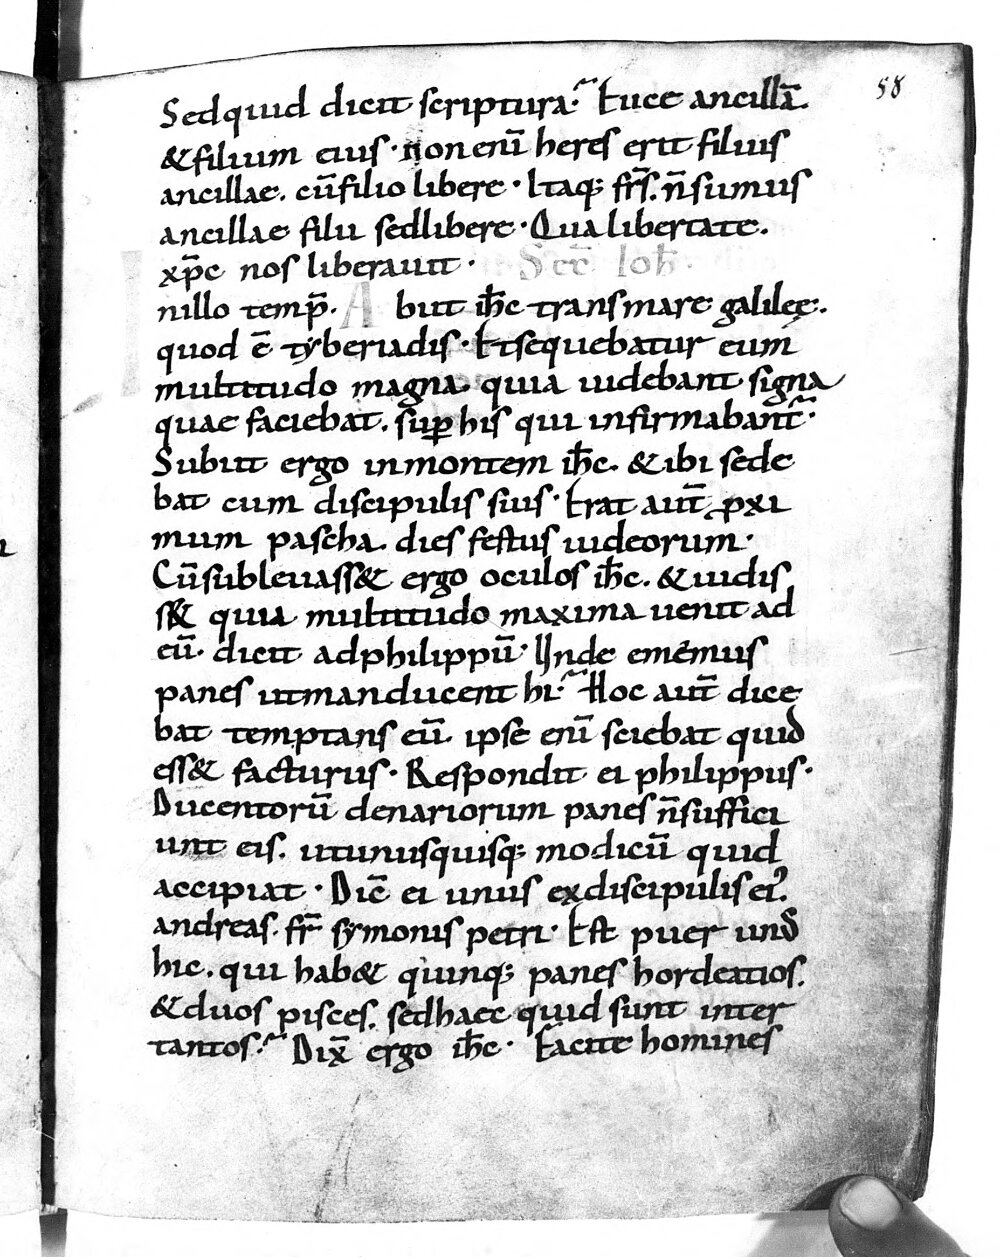 58
Sed quid dicit scriptura. Eice ancillā
& filium eius. Non enī heres erit filius
ancillae. cū filio libere. Itaq; frs̄. n̄ sumus
ancillae filii sed libere. Qua libertate.
xp̄c nos liberavit. Sec̄ Ioh̄.
nillo temp̄. Abiit ih̄c trans mare galileę.
quod ē tyberiadis. Et sequebatur eum
multitudo magna. quia videbant signa
quae faciebat. sup̱ his qui infirmabant᷑.
Subiit ergo in montem ih̄c. & ibi sede
bat cum discipulis suis. Erat aut̄ ꝓxi
mum pascha. dies festus iudeorum.
Cū sublevass& ergo oculos ih̄c. & vidis
s& quia multitudo maxima venit ad
eū. dicit ad philippū. Unde emémus
panes ut manducent hi. Hoc aut̄ dice
bat temptans eū. ipse enī sciebat quid
ess& facturus. Respondit ei philippus.
Ducentorū denariorum panes n̄ suffici
unt eis. ut unusquisq; modicū quid
accipiat. Dic̄ ei unus ex discipulis ei᾿.
andreas. fr̄ symonis petri. Est puer un᾿
hic. qui hab& quinq; panes hordeatios.
& duos pisces. sed haec quid sunt inter
tantos. Dix̄ ergo ih̄c. Facite homines